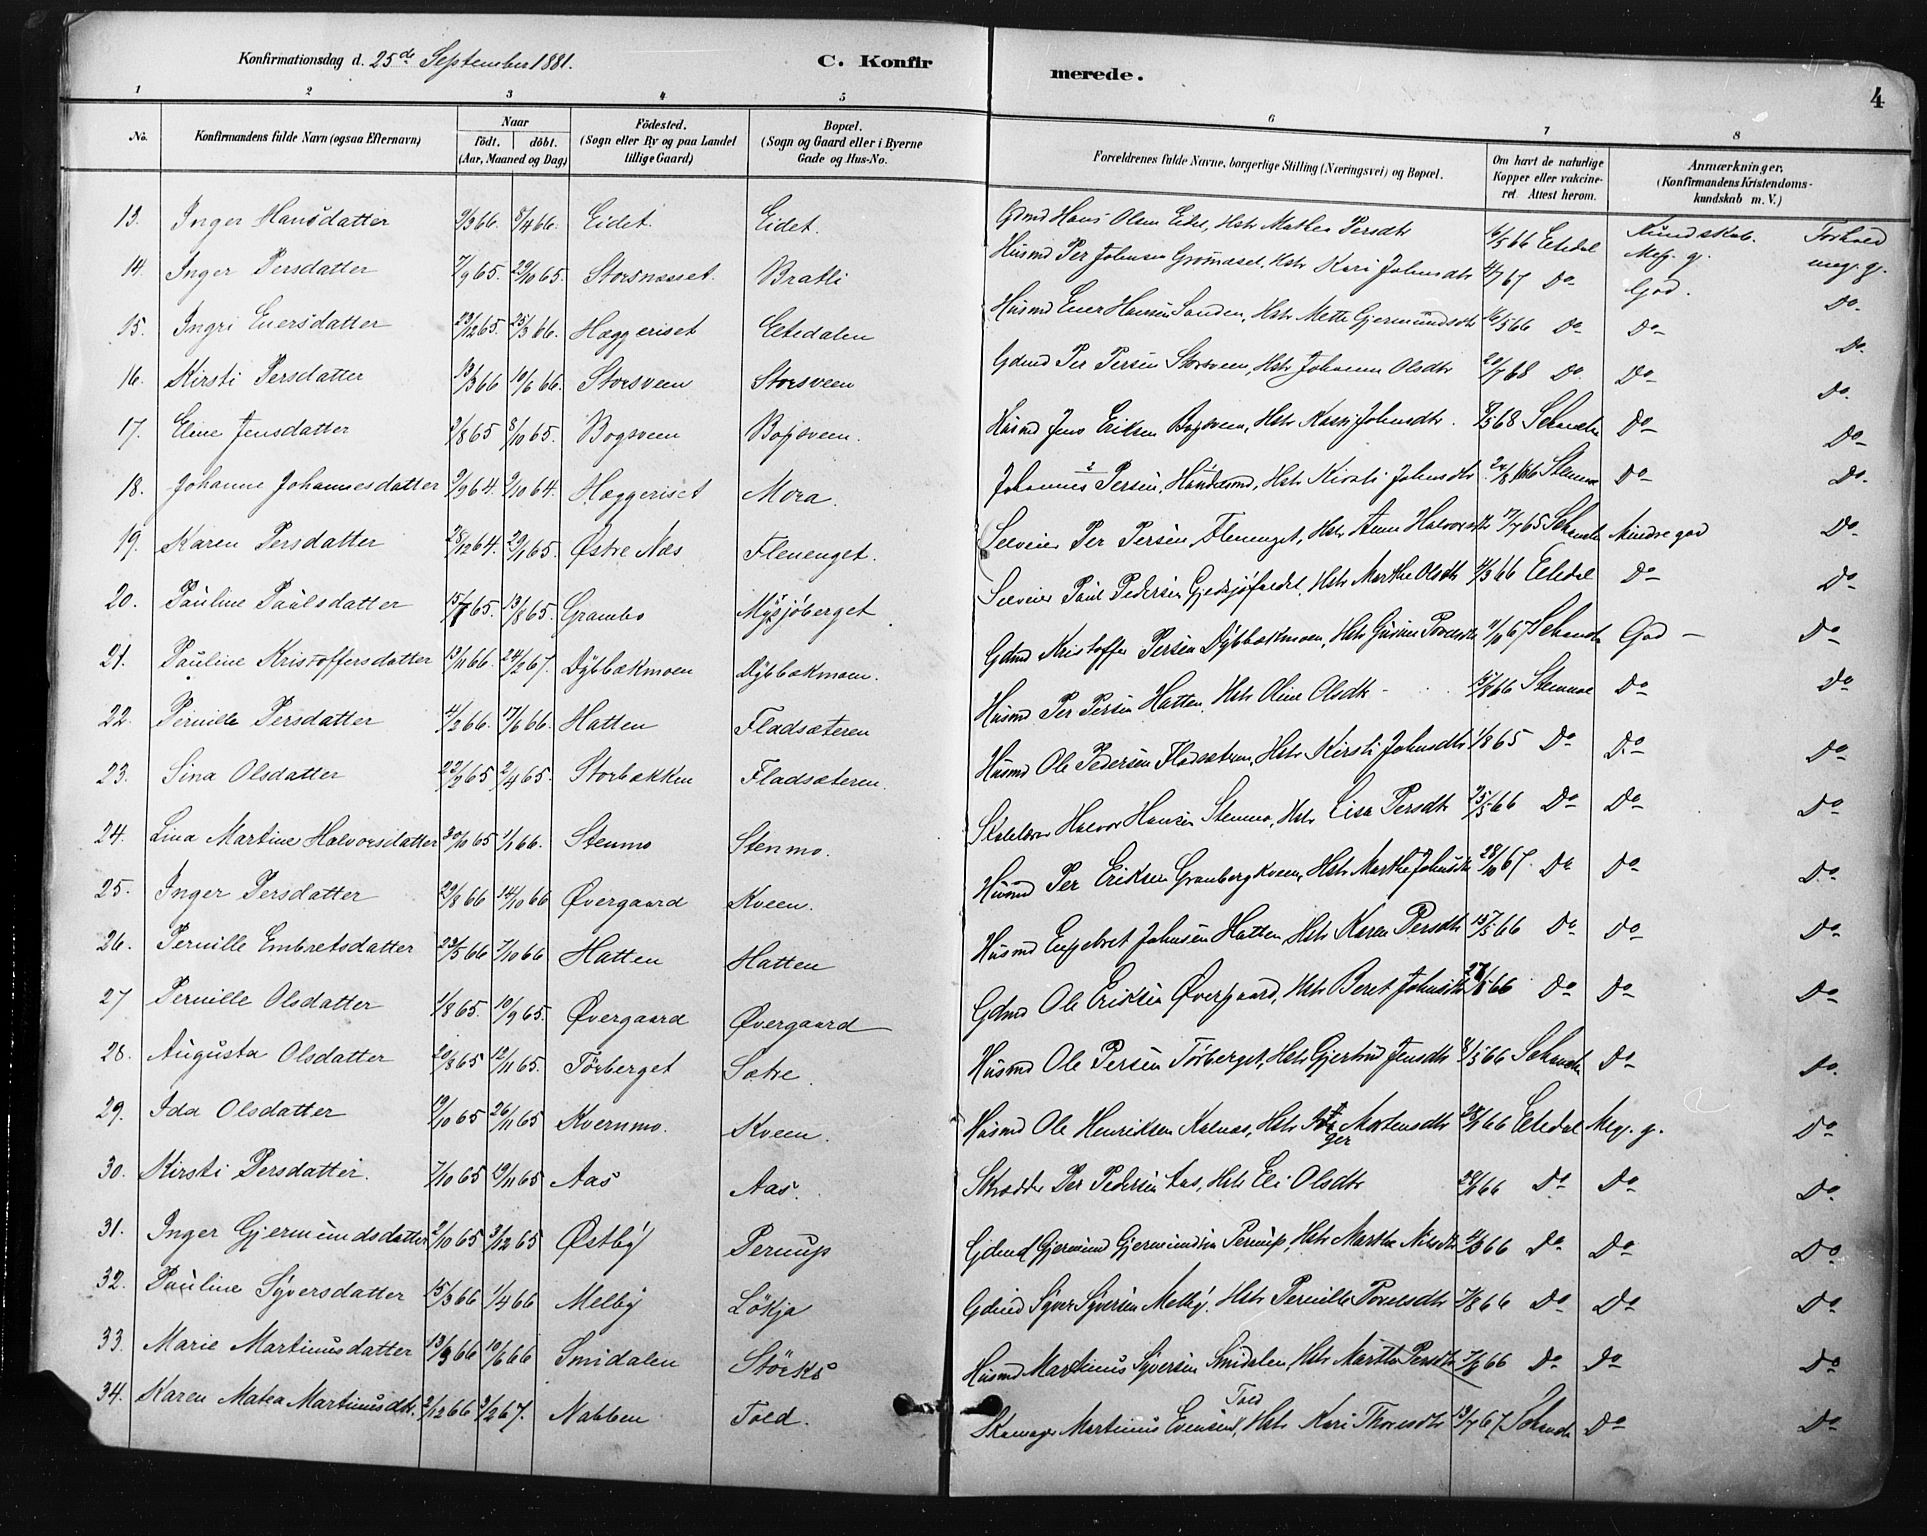 Konfirmationsdag d. 25de September 1881.
C. Konfirmerede.
4
1 2 3 4 5 6 7 8
No.
Konfirmandens fulde Navn (ogsaa Efternavn)
Naar
födt. döbt.
(Aar, Maaned og Dag)
Födested.
(Sogn eller By og paa Landet
tillige Gaard)
Bopæl.
(Sogn og Gaard eller i Byerne
Gade og Hus-No.
Forældrenes fulde Navne, borgerlige Stilling (Næringsvei) og Bopæl.
Om havt de naturlige
Kopper eller vakcine-
ret Attest herom.
Anmærkninger,
(Konfirmandens Kristendoms-
kundskab m. V.)
Kundskab. Forhold
13. Inger Hansdatter 9/3 66. 8/4 66. Eidet. Eidet. Gdmd Hans Olsen Eidet, Hstr Mathea Persdtr 16/5 66 Eltdal Meg. g. meg. g.
14. Inger Persdatter 7/9 65. 29/10 65. Storsnesset. Bratli Husmd Per Johnsen Grönaset, Hstr Kari Johnsdtr 4/7 67 Do God. Do
15. Ingri Enersdatter 23/12 65. 25/3 66. Hæggeriset Eltedalen Husmd Ener Hansen Sanden, Hstr Mette Gjermundsdtr 16/5 66 Do Do Do
16. Kirsti Persdatter 13/3 66 10/6 66. Storsveen Storsveen Gdmd Per Persen Storsveen, Hstr Johanne Olsdtr 20/7 68 Do Do Do
17. Eline Jensdatter 2/8 65 8/10 65. Bogsveen Bogsveen. Husmd Jens Eriksen Bogsveen, Hstr Kari Johnsdtr. 8/5 68 Do Do
18. Johanne Johannesdatter 9/9 64. 9/10 64. Hæggeriset Mora. Johannes Persen, Handsmd, Hstr Kirsti Johnsdtr 20/8 66 Do Do
19. Karen Persdatter 28/12 64. 29/1 65. Østre Næs Flenenget. Selveier Per Persen Flenenget, Hstr Anne Halvorsdtr 17/7 65 Mindre god Do
20. Pauline Paulsdatter 15/7 65. 13/8 65. Grambo Mysjöberget Selveier Paul Pedersen, Hstr Marthe Olsdtr 66 Eltedal Do Do
21. Pauline Kristoffersdatter 13/11 66. 24/2 67. Dybbækmoen Dybbækmoen. Gdmd Kristoffer Persen Dybbækmoen, Hstr 11/10 67 God Do
22. Pernille Persdatter 4/2 66. 17/6 66. Hatten Fladsæteren Husmd Per Persen Hatten, Hstr Oline Olsdtr 66 Do Do
23. Sina Olsdatter 22/2 65 2/4 65. Storbækken Fladsæteren. Husmd Ole Pedersen Fladsæteren, Hstr Kirsti Johnsdtr 1/8 65 Do Do Do
24. Lina Martine Halvorsdatter 20/10 65 1/1 66. Stenmo Stenmo. Halvor Hansen Stenmo, Hstr Lisa Persdtr 25/5 66 Do Do Do
25. Inger Persdatter 29/8 66 14/10 66 Øvergaard Kveen. Husmd Per Eriksen Granbergkveen, Hstr Marthe Johnsdtr 28/10 67. Do Do Do
26. Pernille Embretsdatter 23/5 66 7/10 66 Hatten Hatten Husmd Engebret Johnsen Hatten, Hstr Karen Persdtr 15/5 66 Do Do Do
27 Pernille Olsdatter 1/8 65. 10/9 65. Øvergaard Øvergaard Gdmd Ole Eriksen Øvergaard, Hstr Beret Johnsdtr 66 Do Do Do
28. Augusta Olsdatter 20/8 65 12/11 65. Törberget Sætre. Husmd Ole Persen Törberget, Hstr Gjertrud Jensdtr 8/5 66 Do Do
29. Ida Olsdatter 19/10 65 26/11 65 Kvernmo. Kveen. Husmd Ole Henriksen Kalnæs, Hstr Inger Mortensdtr 66 Eltedal Meg. g. Do
30. Kirsti Persdatter. 7/10 65 19/11 65 Aas Aas. Skrædder Per Pedersen Aas, Hstr Eli Olsdtr 66 Do Do Do
31. Inger Gjermundsdatter 2/10 65 3/12 65 Østby Pernup Gdmd Gjermund Gjermundsen Pernup, Hstr Marthe Nilsdtr 66 Do Do Do
32. Pauline Syversdatter 15/3 66 1/4 66 Melby Lökja Gdmd Syver Syversen Melby, Hstr Pernille Povelsdtr 7/8 66 Do Do Do
33. Marie Martinusdatter 13/3 66 10/6 66 Smidalen Störks Husmd Martinus Syversen Smidalen, Hstr Martha Persdtr 7/8 66 Do Do Do
34. Karen Matea Martinusdtr. 2/12 66 3/2 67. Nabben Toed. Skomager Martinus Evensen Toed, Hstr Kari Thoresdtr 13/7 67 Do Do